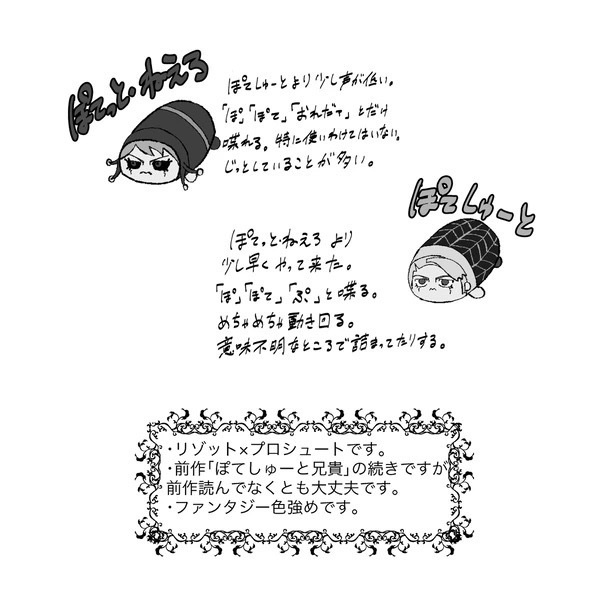 ぽてっと・ねえろ
ぽてしゅーとより少し声が低い。
「ぽ」「ぽて」「おれだァ」とだけ
喋れる。特に使いわけてはいない。
じっとしていることが多い。
ぽてしゅーと
ぽてっと・ねえろ より
少し早くやって来た。
「ぽ」「ぽて」「ぷ」と喋る。
めちゃめちゃ動き回る。
意味不明なところで詰まってたりする。
・リゾット×プロシュートです。
・前作「ぽてしゅーと兄貴」の続きですが
前作読んでなくとも大丈夫です。
・ファンタジー色強めです。